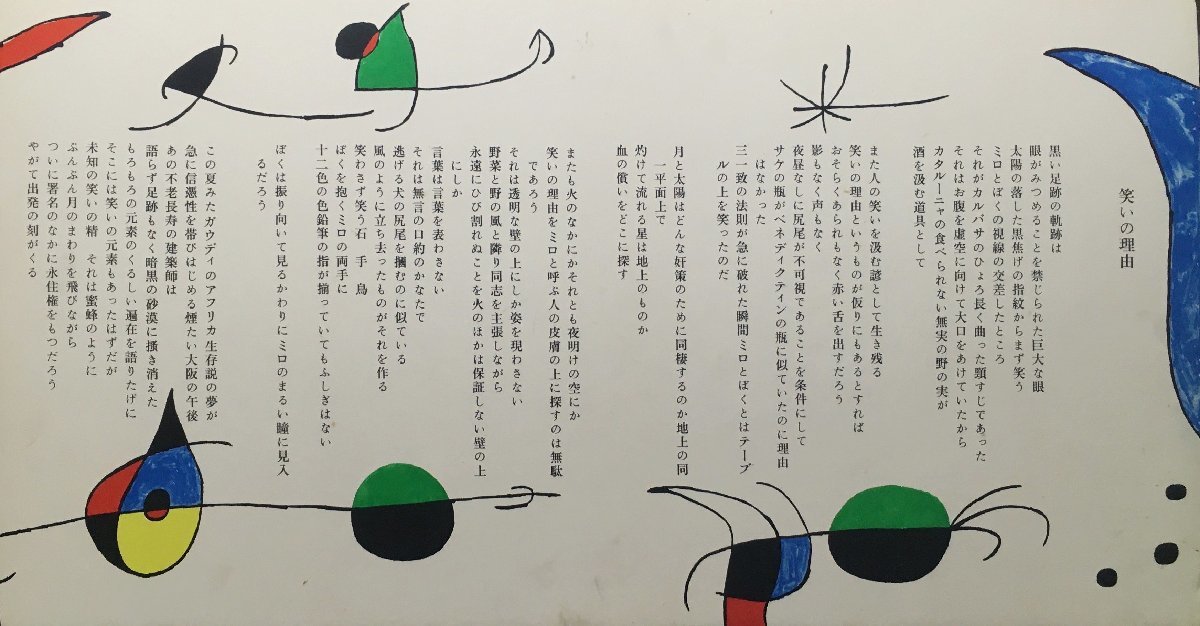 笑いの理由
黒い足跡の軌跡は
眼がみつめることを禁じられた巨大な眼
太陽の落した黒焦げの指紋からまず笑う
ミロとぼくの視線の交差したところ
それがカルバサのひょろ長く曲った頸すじであった
それはお腹を虚空に向けて大口をあけていたから
カタルーニャの食べられない無実の野の実が
酒を汲む道具として
また人の笑いを汲む諺として生き残る
笑いの理由というものが仮りにもあるとすれば
おそらくあられもなく赤い舌を出すだろう
影もなく声もなく
夜昼なしに尻尾が不可視であることを条件にして
サケの瓶がベネディクティンの瓶に似ていたのに理由
はなかった
三一致の法則が急に破れた瞬間ミロとぼくとはテーブ
ルの上を笑ったのだ
月と太陽はどんな奸策のために同棲するのか地上の同
一平面上で
灼けて流れる星は地上のものか
血の償いをどこに探す
またも火のなかにかそれとも夜明けの空にか
笑いの理由をミロと呼ぶ人の皮膚の上に探すのは無駄
であろう
それは透明な壁の上にしか姿を現わさない
野菜と野の風と隣り同志を主張しながら
永遠にひび割れぬことを火のほかは保証しない壁の上
にしか
言葉は言葉を表わさない
それは無言の口約のかなたで
逃げる犬の尻尾を摑むのに似ている
風のように立ち去ったものがそれを作る
笑わきず笑う石　手　鳥
ぼくを抱くミロの両手に
十二色の色鉛筆の指が揃っていてもふしぎはない
ぼくは振り向いて見るかわりにミロのまるい瞳に見入
るだろう
この夏みたガウディのアフリカ生存説の夢が
急に信憑性を帯びはじめる煙たい大阪の午後
あの不老長寿の建築師は
語らず足跡もなく暗黒の砂漠に搔き消えた
もろもろの元素のくるしい遍在を語りたげに
そこには笑いの元素もあったはずだが
未知の笑いの精　それは蜜蜂のように
ぶんぶん月のまわりを飛びながら
ついに署名のなかに永住権をもつだろう
やがて出発の刻がくる